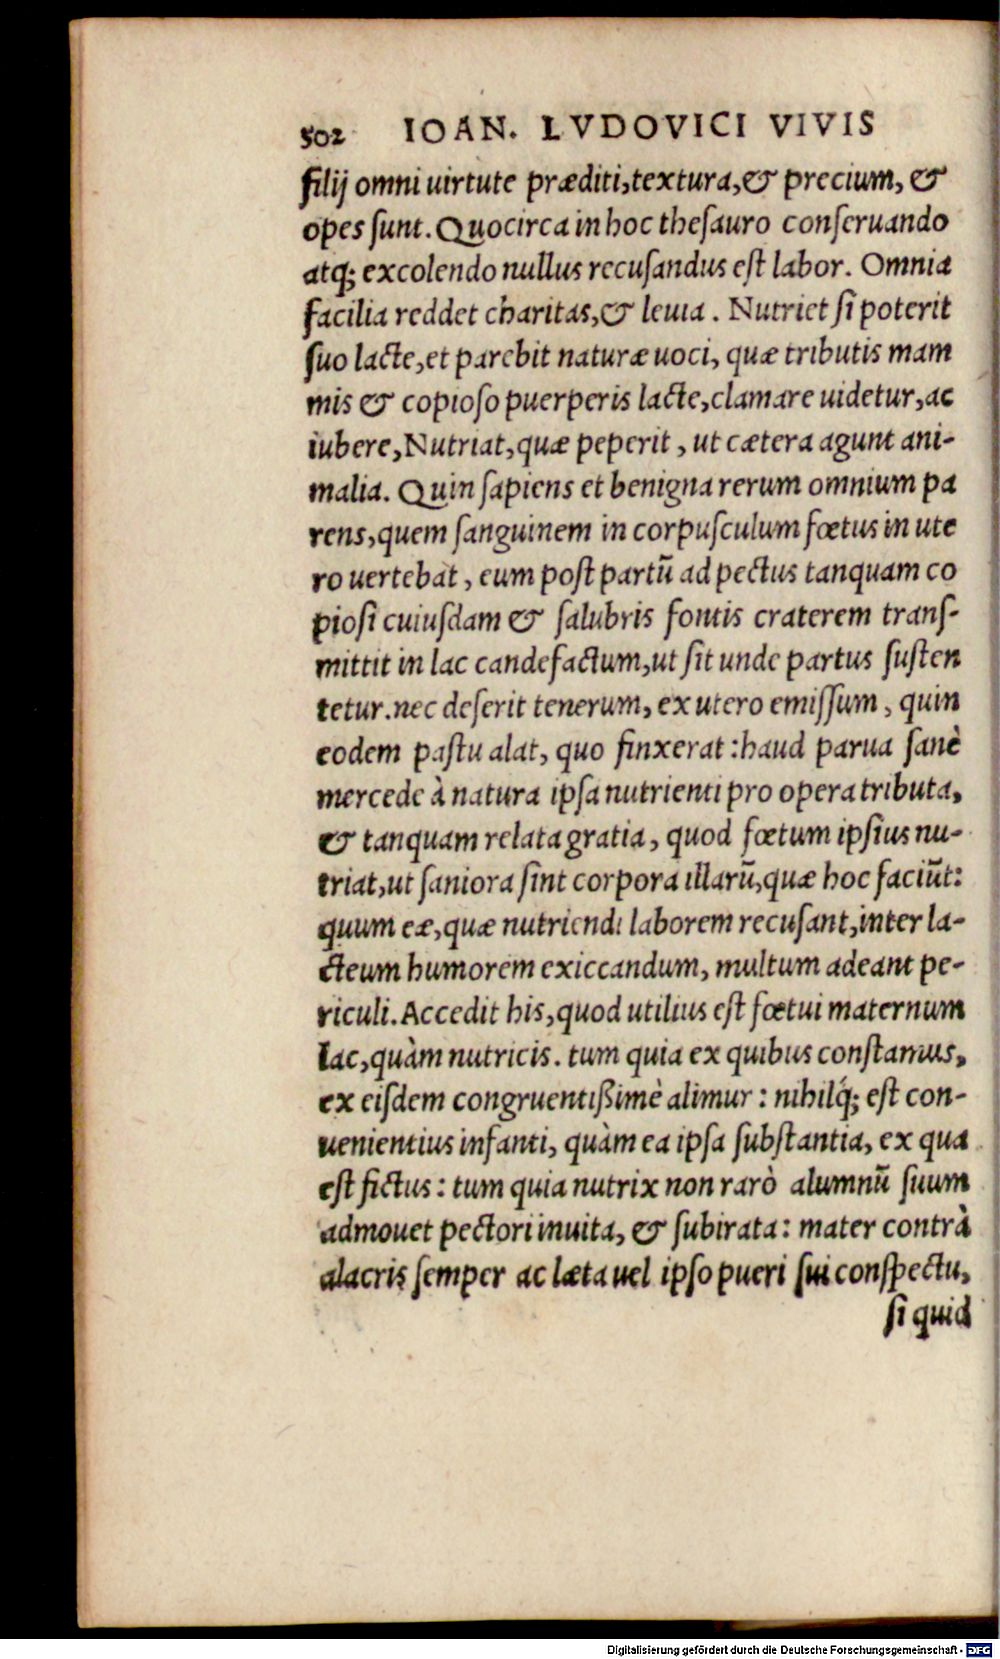 502 IOAN. LVDOVICI VIVIS
filij omni uirtute præditi, textura, & precium, &
opes sunt. Quocirca in hoc thesauro conseruando
atq; excolendo nullus recusandus est labor. Omnia
facilia reddet charitas, & leuia. Nutriet si poterit
suo lacte, et parebit naturæ uoci, quæ tributis mam
mis & copioso puerperis lacte, clamare uidetur, ac
iubere, Nutriat, quæ peperit, ut cætera agunt ani-
malia. Quin sapiens et benigna rerum omnium pa
rens, quem sanguinem in corpusculum fœtus in ute
ro uertebat, eum post partũ ad pectus tanquam co
piosi cuiusdam & salubris fontis craterem trans-
mittit in lac candefactum, ut sit unde partus susten
tetur. nec deserit tenerum, ex utero emissum, quin
eodem pastu alat, quo finxerat: haud parua sanè
mercede à natura ipsa nutrienti pro opera tributa,
& tanquam relata gratia, quod fœtum ipsius nu-
triat, ut saniora sint corpora illarũ, quæ hoc faciũt:
quum eæ, quæ nutriendi laborem recusant, inter la-
cteum humorem exiccandum, multum adeant pe-
riculi. Accedit his, quod utilius est fœtui maternum
lac, quàm nutricis. tum quia ex quibus constamus,
ex eisdem congruentißimè alimur: nihilq́; est con-
uenientius infanti, quàm ea ipsa substantia, ex qua
est fictus: tum quia nutrix non rarò alumnũ suum
admouet pectori inuita, & subirata: mater contrà
alacris semper ac læta uel ipso pueri sui conspectu,
si quid
Digitalisierung gefördert durch die Deutsche Forschungsgemeinschaft - DFG